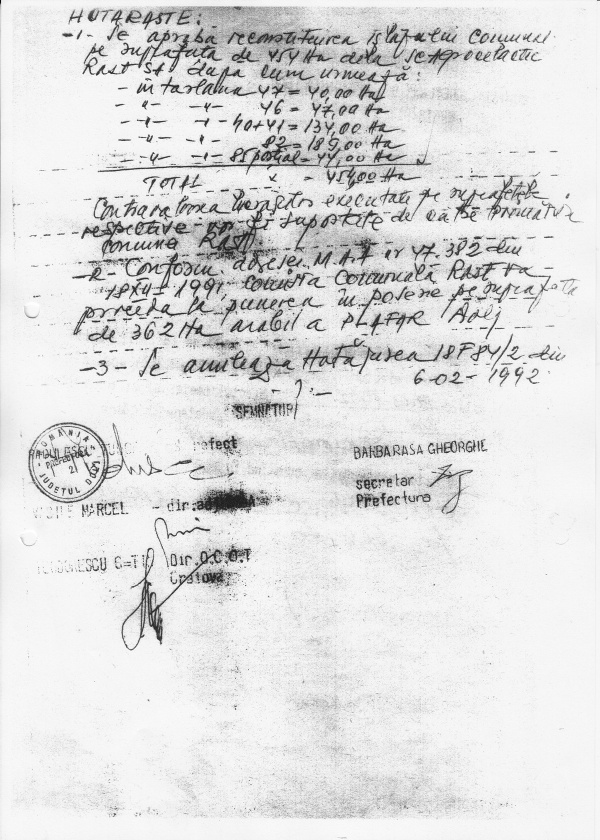 HOTARASTE:
-1- Se aprobă reconstituirea islazului comunal
pe suprafata de 454 Ha dela SC Agrocelactic
Rast SA dupa cum urmează:
- în tarlaua 47 = 40,00 Ha
- " - -"- 46 = 47,00 Ha
- " - -"- 40+41 = 134,00 Ha
- " - -"- 82 = 189,00 Ha
- " - -"- 85 partial = 44,00 Ha
TOTAL x = 454,00 Ha
Contravaloarea lucrarilor executate pe suprafetele
respective vor fi suportate de către primaria
comunei Rast
-2- Conform adresei M.A.A nr 47.382 din
18 XII - 1991, comisia comunala Rast va
proceda la punerea în posesie pe suprafata
de 362 Ha arabil a PLAFAR Dolj
-3- Se anuleaza Hotărârea 18F84/2 din
6-02-1992.
SEMNATURI
ROMANIA
JUDETUL DOLJ
prefect
BARBARASA GHEORGHE
secretar
Prefectura
MARCEL - dir.
C-TI Dir.O.C.O.T
Craiova